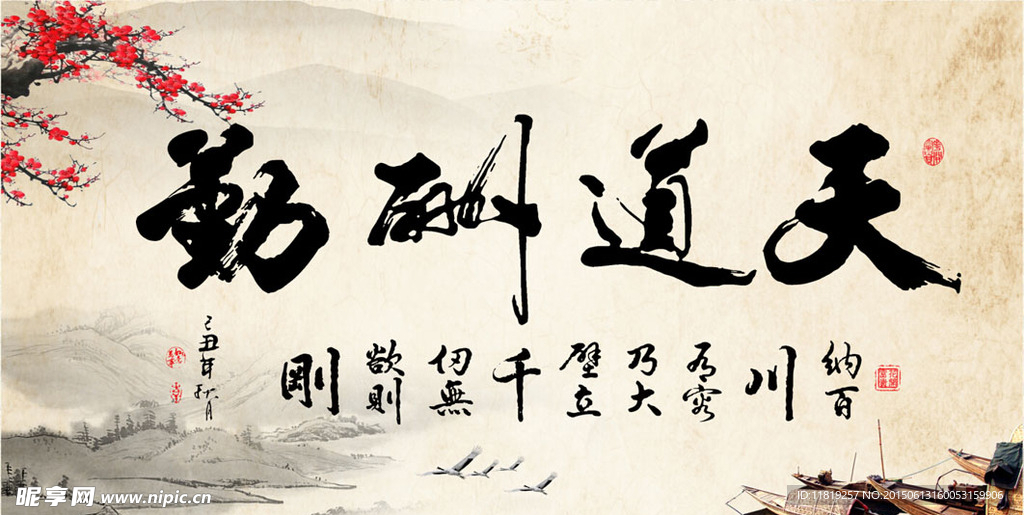 天道酬勤
納百
川
有容
乃大
壁立
千
仞無
欲則
剛
己丑年秋月
昵享网 www.nipic.cn
ID:11819257 NO:20150613160053159906